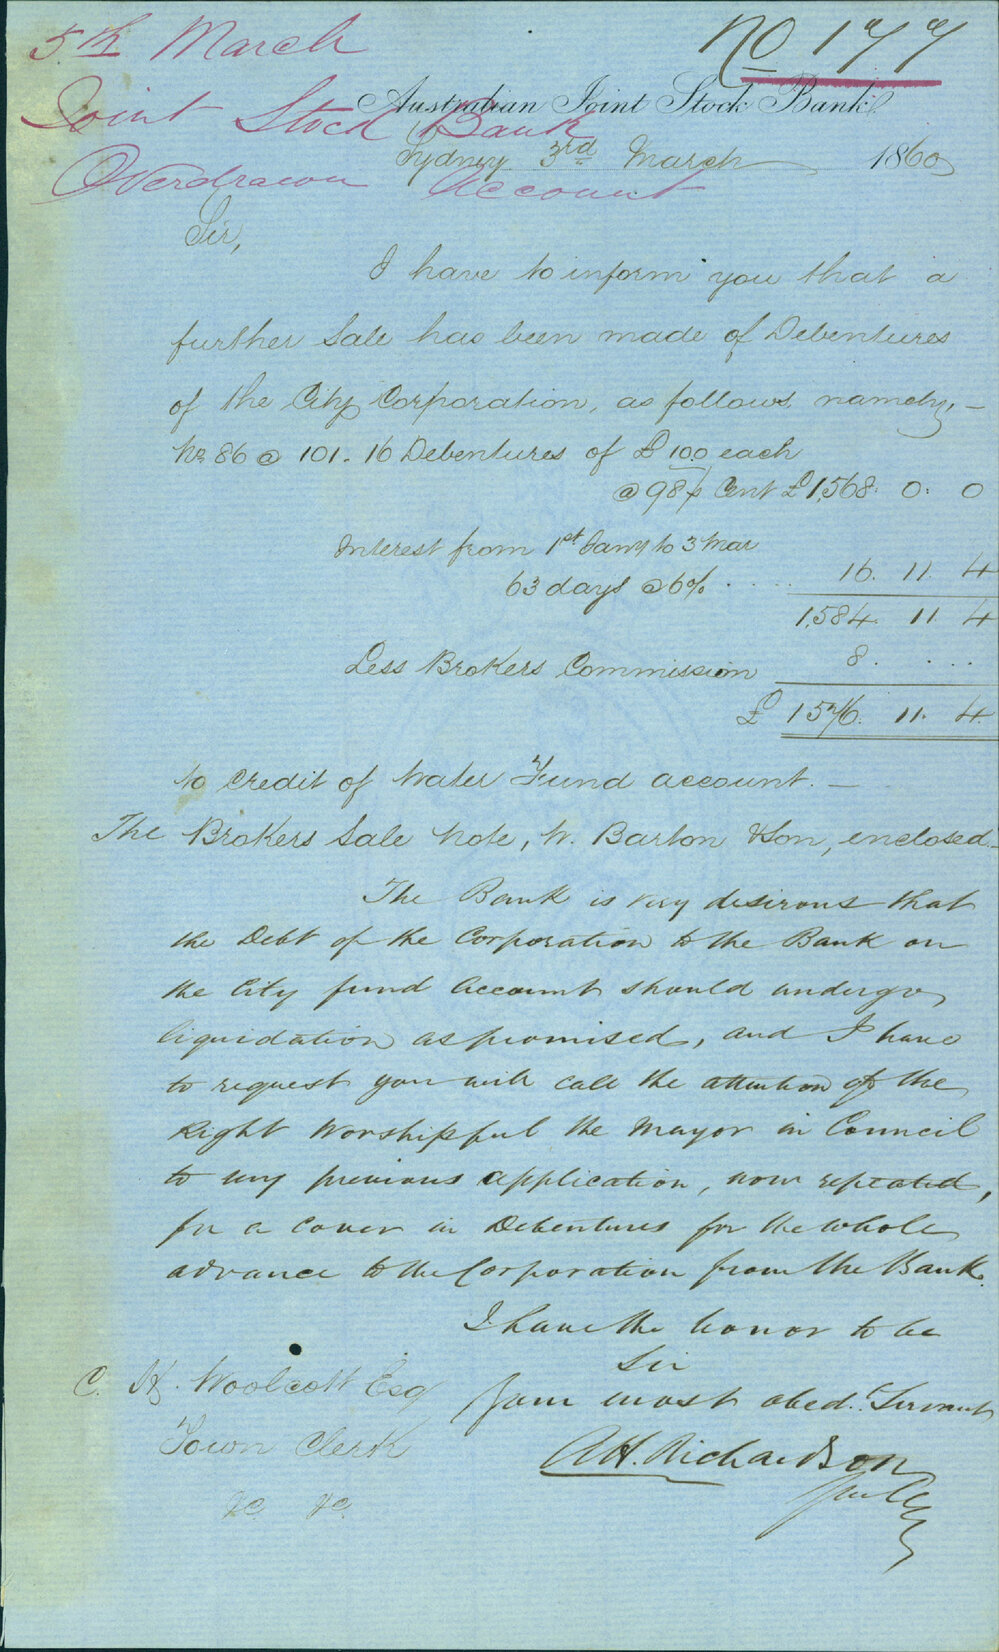 5th March
No 177
Joint Stock Bank
Overdrawn Account
Australian Joint Stock Bank
Sydney 3rd March 1860
Sir,
I have to inform you that a
further Sale has been made of Debentures
of the City Corporation, as follows namely, -
No. 86 @ 101 - 16 Debentures of £100 each
@ 98 p Cent £1,568. 0. 0
Interest from 1st Jany to 3 Mar
63 days @ 6% . . . . 16. 11. 4
1,584. 11 4
Less Brokers Commission 8. . . . .
£ 1576. 11. 4.
to credit of Water Fund account. -
The Brokers Sale Note, W. Barton & Son, enclosed -
The Bank is very desirous that
the Debt of the Corporation to the Bank on
the City fund Account should undergo
liquidation as promised, and I have
to request you will call the attention of the
Right Worshipful the Mayor in Council
to my previous application, now repeated,
for a cover in Debentures for the whole
advance to the Corporation from the Bank.
I have the honor to be
Sir
Your most obed.t Servant
AH. Richardson
C. H. Woolcott Esq
Town Clerk
&c. &c.